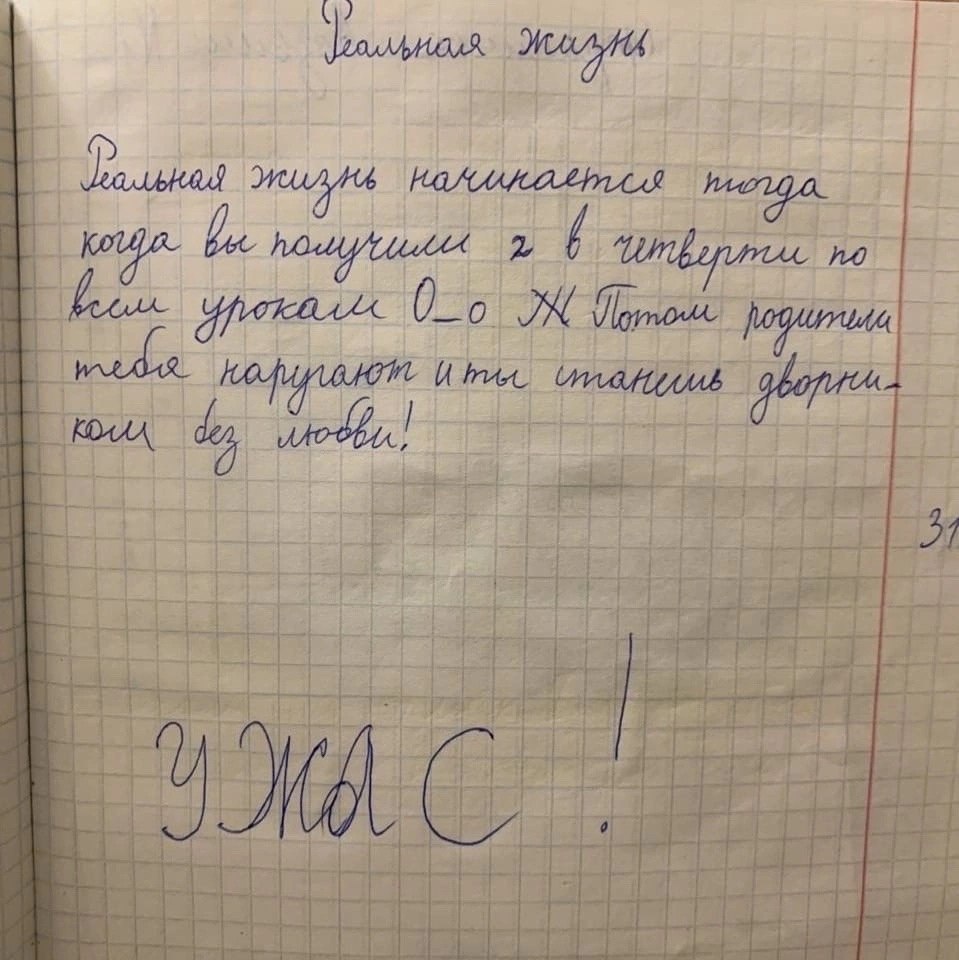 Реальная жизнь
Реальная жизнь начинается тогда
когда вы получили 2 в четверти по
всем урокам О_о Ж Потом родители
тебя наругают и ты станешь дворни-
ком без любви!
31
УЖАС!